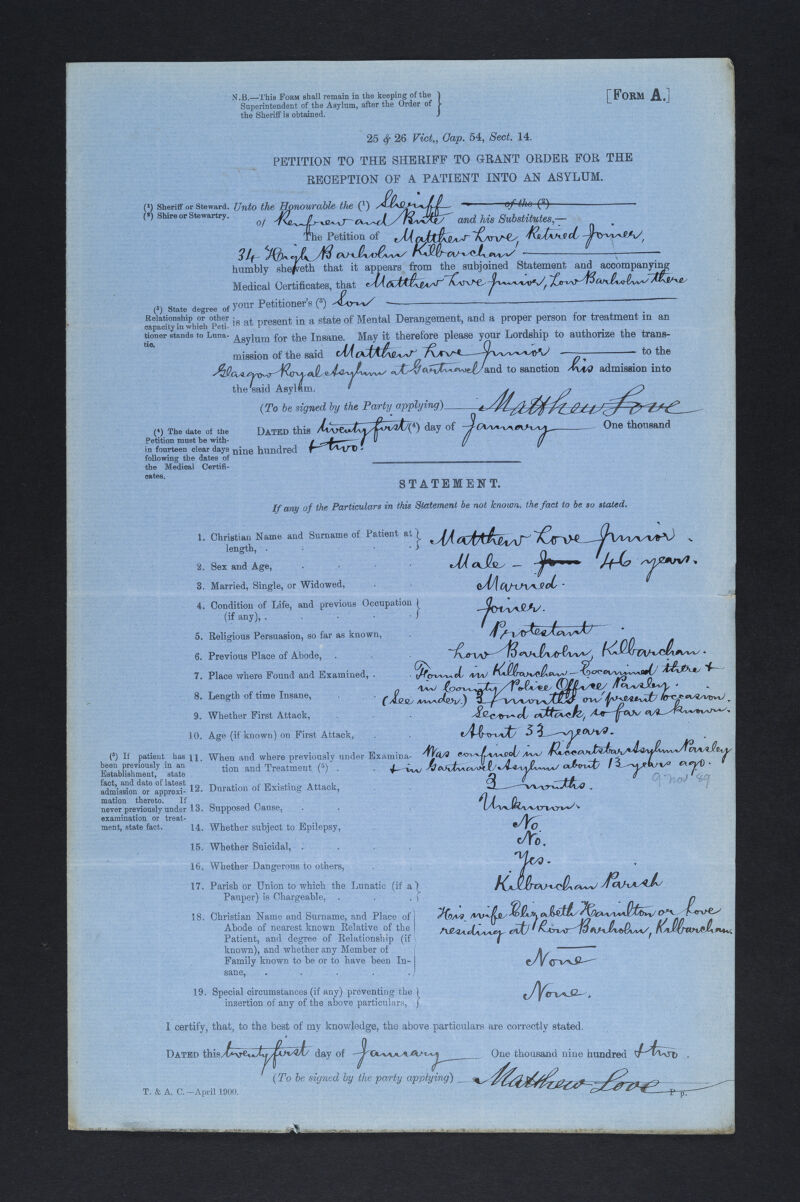 N.B.—This Form shall remain in the keeping of the
Superintendent of the Asylum, after the Order of
the Sheriff is obtained.
[Form A.]
25 & 26 Vict., Cap. 54, Sect. 14.
PETITION TO THE SHERIFF TO GRANT ORDER FOR THE
RECEPTION OF A PATIENT INTO AN ASYLUM.
(1) Sheriff or Steward.
(2) Shire or Stewartry.
Unto the Honourable the (1) Sheriff of the (2)
of Renfrew and Bute and his Substitutes,—
The Petition of Matthew Love, Retired Joiner,
34 High Barholm Kilbarchan
humbly sheweth that it appears from the subjoined Statement and accompanying
Medical Certificates, that Matthew Love junior, Low Barholm there
(3) State degree of
Relationship or other
capacity in which Peti-
tioner stands to Luna-
tic.
your Petitioner's (3) Son
is at present in a state of Mental Derangement, and a proper person for treatment in an
Asylum for the Insane. May it therefore please your Lordship to authorize the trans-
mission of the said Matthew Love Junior to the
Glasgow Royal Asylum at Gartnavel and to sanction his admission into
the said Asylum.
(To be signed by the Party applying) Matthew Love
(4) The date of the
Petition must be with-
in fourteen clear days
following the dates of
the Medical Certifi-
cates.
Dated this twenty first (4) day of January One thousand
nine hundred & two.
STATEMENT.
If any of the Particulars in this Statement be not known, the fact to be so stated.
1. Christian Name and Surname of Patient at
length, . Matthew Love Junior.
2. Sex and Age, Male – 46 years.
3. Married, Single, or Widowed, Married.
4. Condition of Life, and previous Occupation
(if any), . Joiner.
5. Religious Persuasion, so far as known, Protestant
6. Previous Place of Abode, . Low Barholm, Kilbarchan.
7. Place where Found and Examined, . Found in Kilbarchan – Examined there &
in County Police Office Paisley.
8. Length of time Insane, (See under) 3 months on present occasion.
9. Whether First Attack, Second attack, so far as known.
10. Age (if known) on First Attack, About 33 years.
(5) If patient has
been previously in an
Establishment, state
fact, and date of latest
admission or approxi-
mation thereto. If
never previously under
examination or treat-
ment, state fact.
11. When and where previously under Examina-
tion and Treatment (5) . Was confined in Riccartsbar Asylum Paisley
& in Gartnavel Asylum about 13 years ago.
9 Nov 89
12. Duration of Existing Attack, 3 months.
13. Supposed Cause, Unknown.
14. Whether subject to Epilepsy, No.
15. Whether Suicidal, . No.
16. Whether Dangerous to others, Yes.
17. Parish or Union to which the Lunatic (if a
Pauper) is Chargeable, . Kilbarchan Parish
18. Christian Name and Surname, and Place of
Abode of nearest known Relative of the
Patient, and degree of Relationship (if
known), and whether any Member of
Family known to be or to have been In-
sane, .
His wife Elizabeth Hamilton or Love
residing at Low Barholm, Kilbarchan.
None
19. Special circumstances (if any) preventing the
insertion of any of the above particulars, None.
I certify, that, to the best of my knowledge, the above particulars are correctly stated.
Dated this twenty first day of January One thousand nine hundred & two.
(To be signed by the party applying) Matthew Love
T. & A. C.—April 1900.
P p.